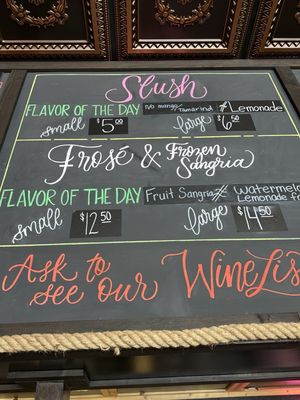 Slush
FLAVOR OF THE DAY mango/Tamarind # Lemonade
small $5.00 large $6.50
Frosé & Frozen Sangria
FLAVOR OF THE DAY Fruit Sangria # Watermelo Lemonade
small $12.50 large $14.50
Ask to see our Wine Lis